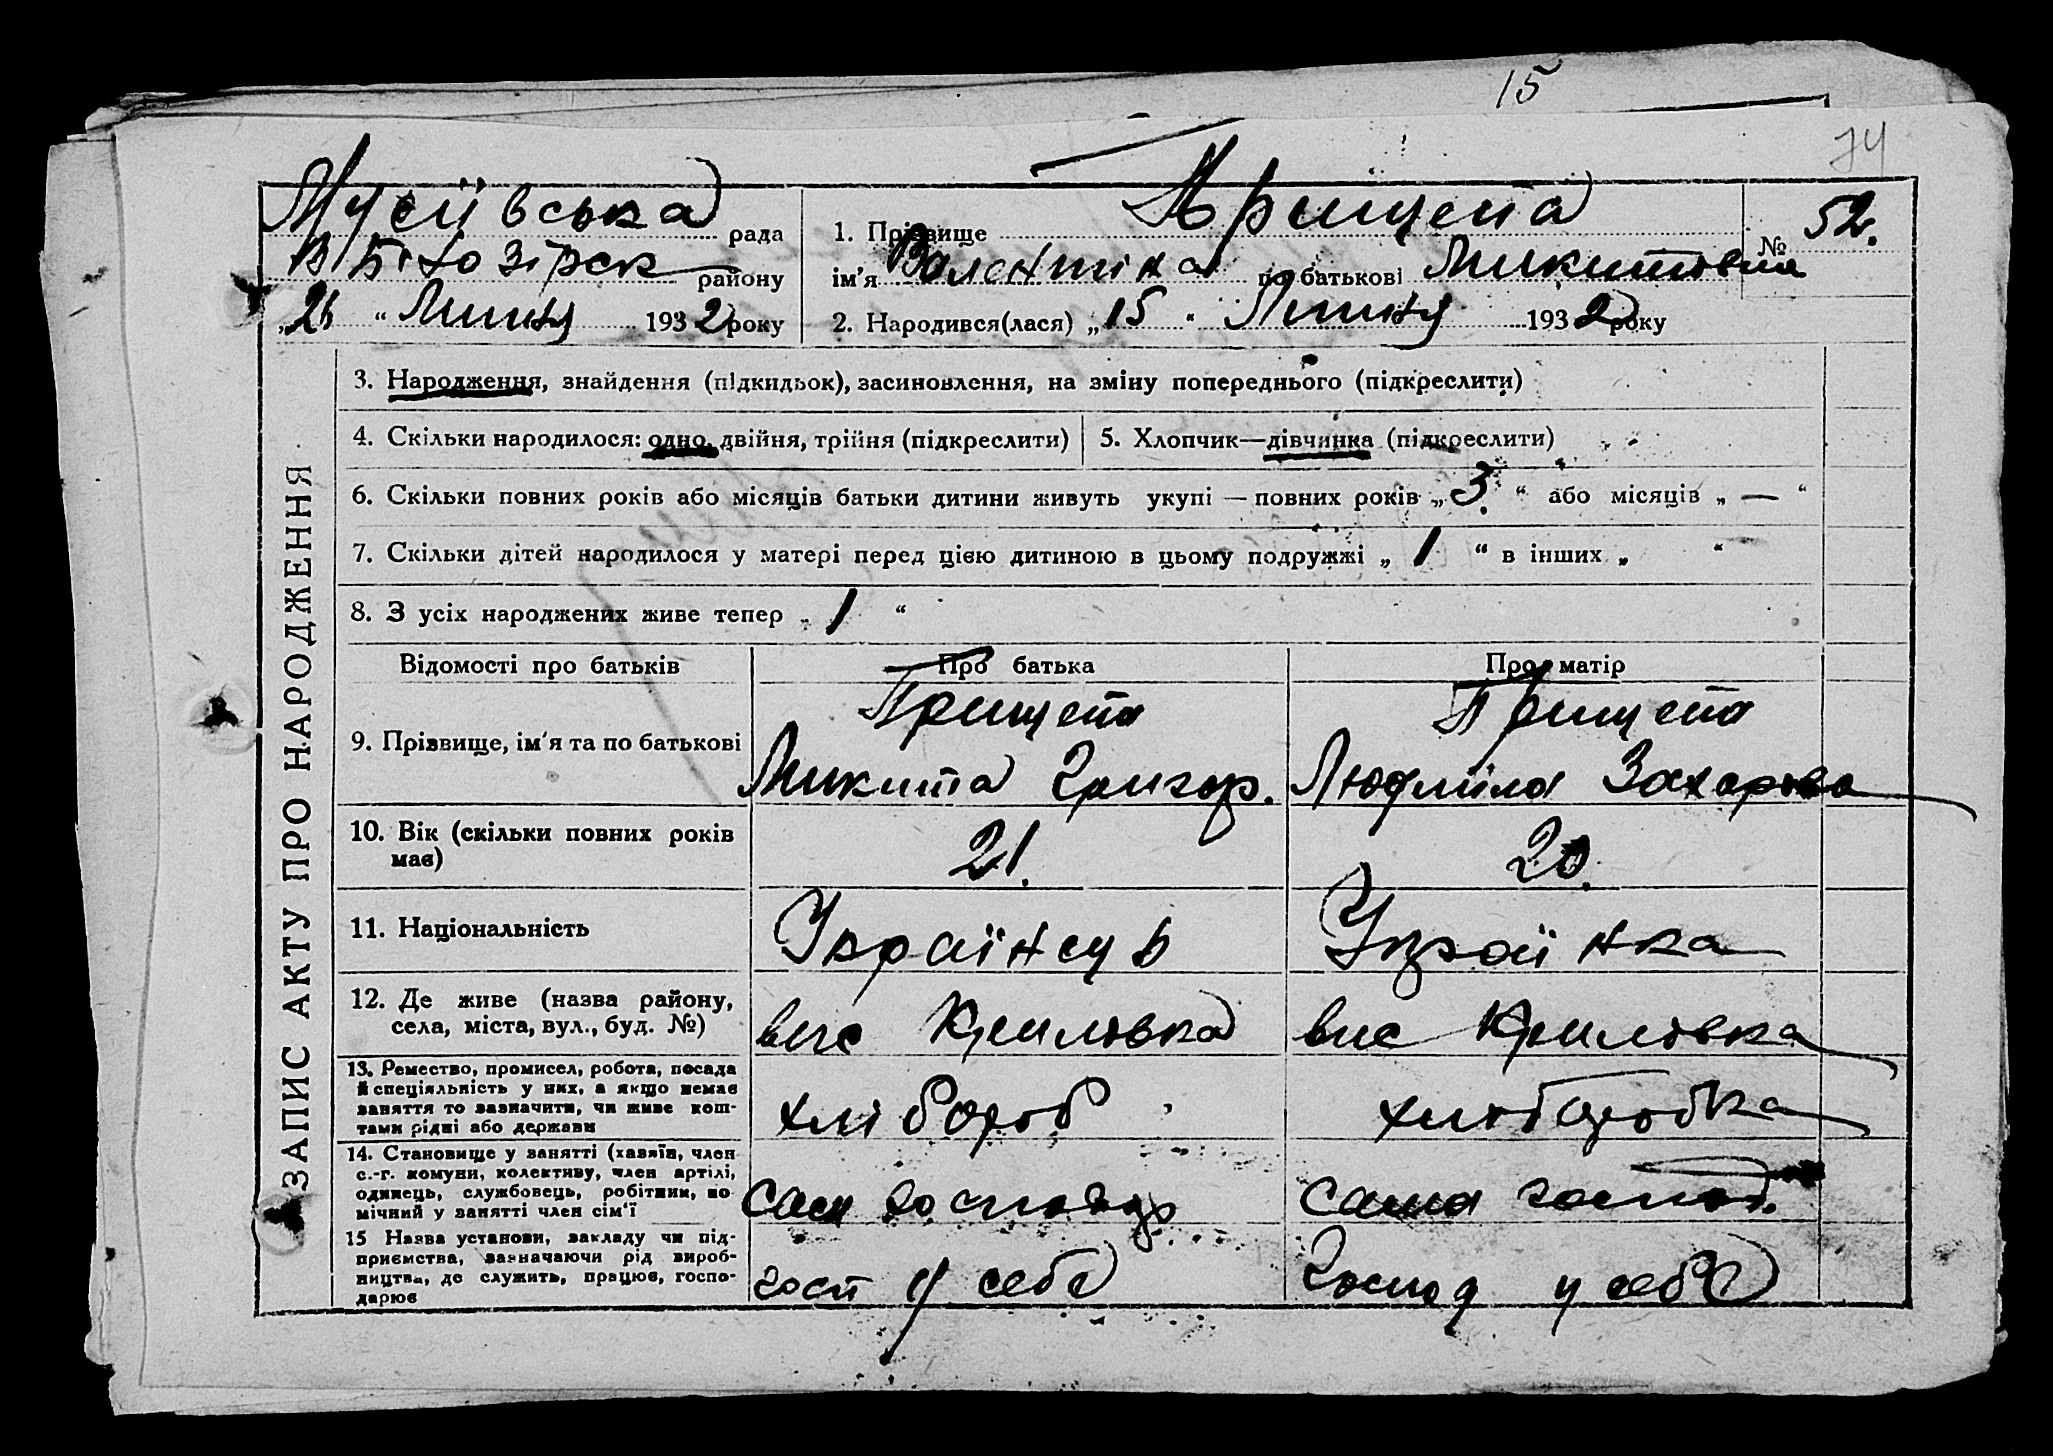 15
74
Мусіївська рада
В Білозірськ району
„26 “ Липня 1932 року
1. Прізвище Прищепа № 52.
ім’я Валентина по батькові Микитовна
2. Народився(лася) „15 “ Липня 1932 року
ЗАПИС АКТУ ПРО НАРОДЖЕННЯ
3. Народження, знайдення (підкидьок), засиновлення, на зміну попереднього (підкреслити)
4. Скільки народилося: одно, двійня, трійня (підкреслити)
5. Хлопчик—дівчинка (підкреслити)
6. Скільки повних років або місяців батьки дитини живуть укупі — повних років „3.“ або місяців „—“
7. Скільки дітей народилося у матері перед цією дитиною в цьому подружжі „1“ в інших „ “
8. З усіх народжених живе тепер „1“
Відомості про батьків Про батька Про матір
9. Прізвище, ім’я та по батькові
Прищепа
Микита Григор.
Прищепа
Людмила Захарова
10. Вік (скільки повних років
має)
21.
20.
11. Національність
Українець
Українка
12. Де живе (назва району,
села, міста, вул., буд. №)
вис Крилівка
вис Крилівка
13. Ремество, промисел, робота, посада
й спеціяльність у них, а якщо немає
заняття то зазначити, чи живе кош-
тами рідні або держави
хлібороб
хліборобка
14. Становище у занятті (хазяїн, член
с.-г. комуни, колективу, член артілі,
одинець, службовець, робітник, по
мічний у занятті член сім’ї
сам господар
сама господ.
15 Назва установи, закладу чи під-
приємства, зазначаючи рід вироб-
ництва, де служить, працює, госпо-
дарює
госп у себе
господ у себе